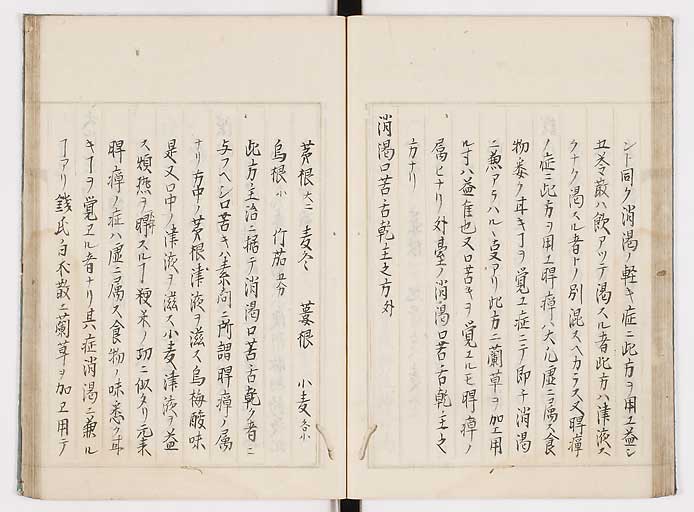 ント同ク消渇ノ軽キ症ニ此方ヲ用ユ益シ
五苓散ハ飲アツテ渇スル者此方ハ津液ス
クナク渇スル者トノ別混スヘカラス又脾癉
ノ症ニ此方ヲ用ユ脾癉ハ大凡虚ニ属ス食
物悉ク甘キヿヲ覚ユ症ニテ即チ消渇
ニ兼アラハルヽ支アリ此方ニ蘭草ヲ加エ用
ル寸ハ益佳也又口苦キヲ覚ユルモ脾癉ノ
属ヒナリ外台ノ消渇口苦舌乾主之
方ナリ
消渇口苦舌乾主之方 外
茅根 大二 麦冬 蔞根 小麦 各小
烏根 小 竹茹 五分
此方主治ニ拠テ消渇口苦舌乾ノ者ニ
与フヘシ口苦キハ素問ニ所謂脾癉ノ属
ナリ方中ノ茅根津液ヲ滋ス烏梅酸味
是又口中ノ津液ヲ滋ス小麦津液ヲ益
ス煩熱ヲ スルヿ粳米ノ功ニ似タリ元来
脾癉ノ症ハ虚ニ属ス食物ノ味悉ク甘
キヿヲ覚ユル者ナリ其症消渇ニ兼ル
ヿアリ銭氏白朮散ニ蘭草ヲ加エ用テ